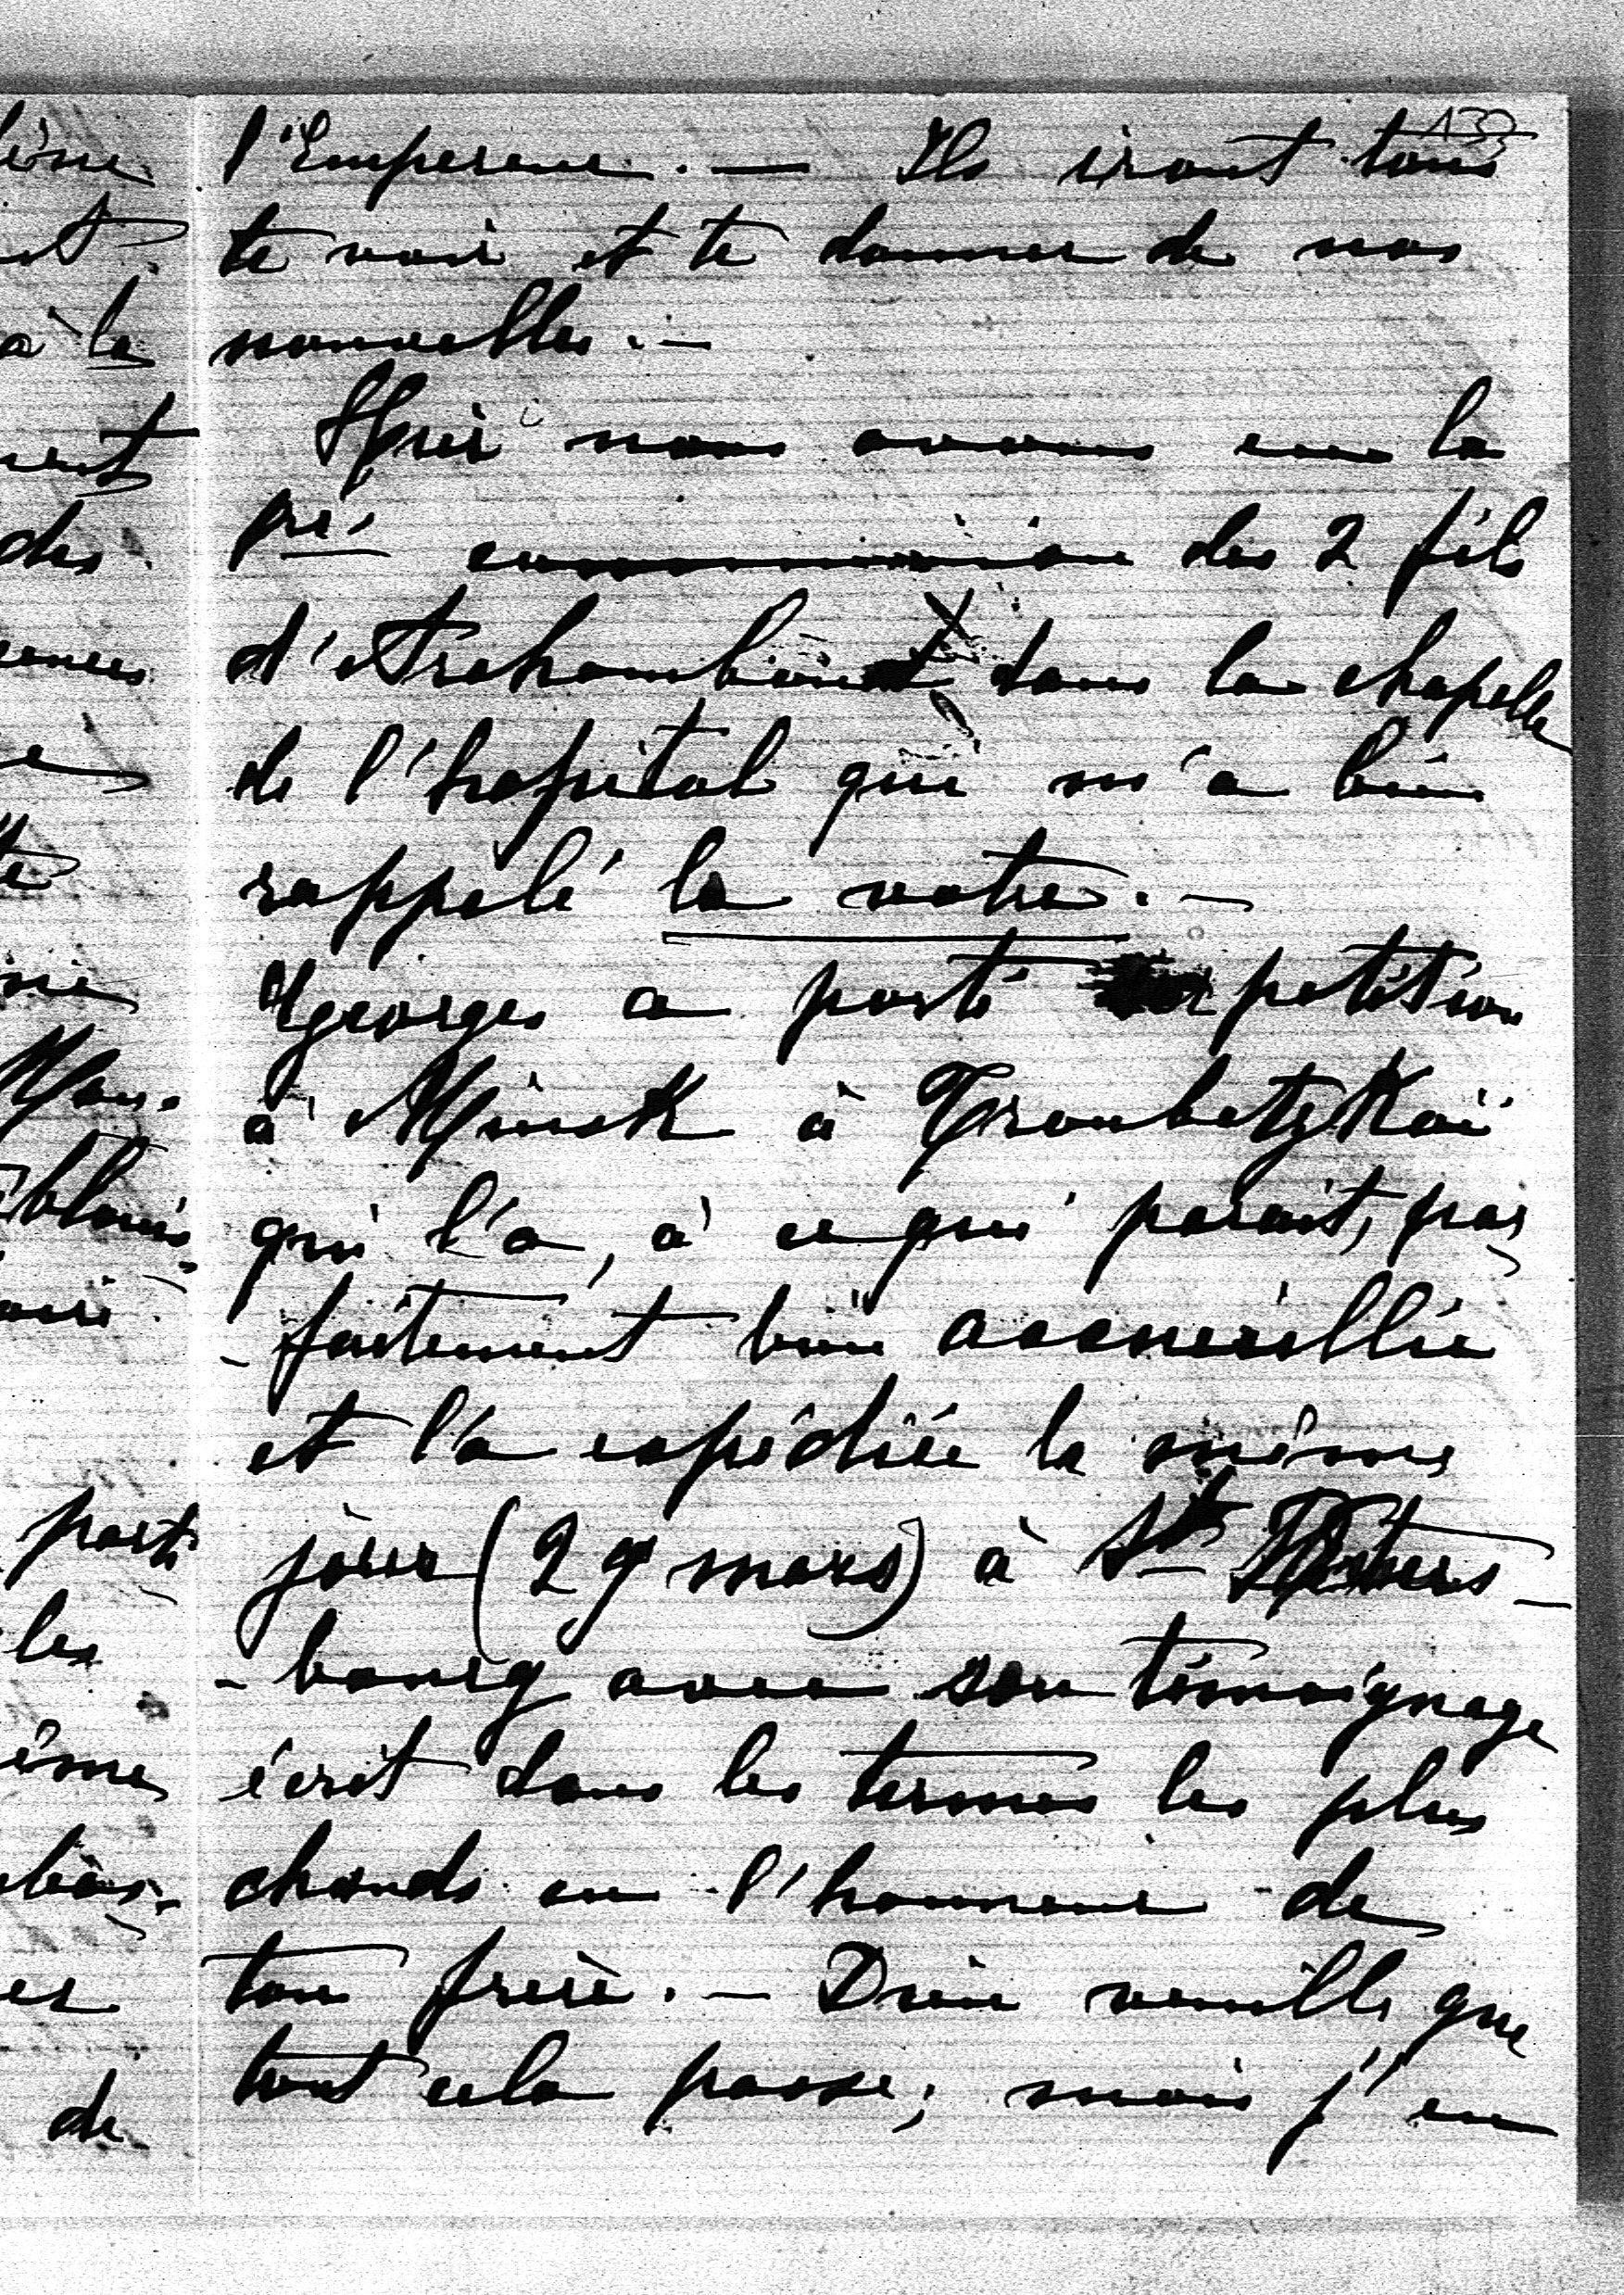 133
l'Empereur. — Ils iront tous
te voir et te donner de nos
nouvelles. —
Hier nous avons eu la
1re communion des 2 fils
d'Archambault dans la chapelle
de l'hopital qui m'a bien
rappelé la votre. —
Georges a porté petition
à Minsk à Troubetzkoï
qui l'a, à ce qui parait, par
- faitement bien accueillie
et l'a expédiée le même
jour (29 mars) à St Peters -
- bourg avec son témoignage
écrit dans les termes les plus
chauds en l'honneur de
ton frère. — Dieu veuille que
tout cela passe; mais j'en